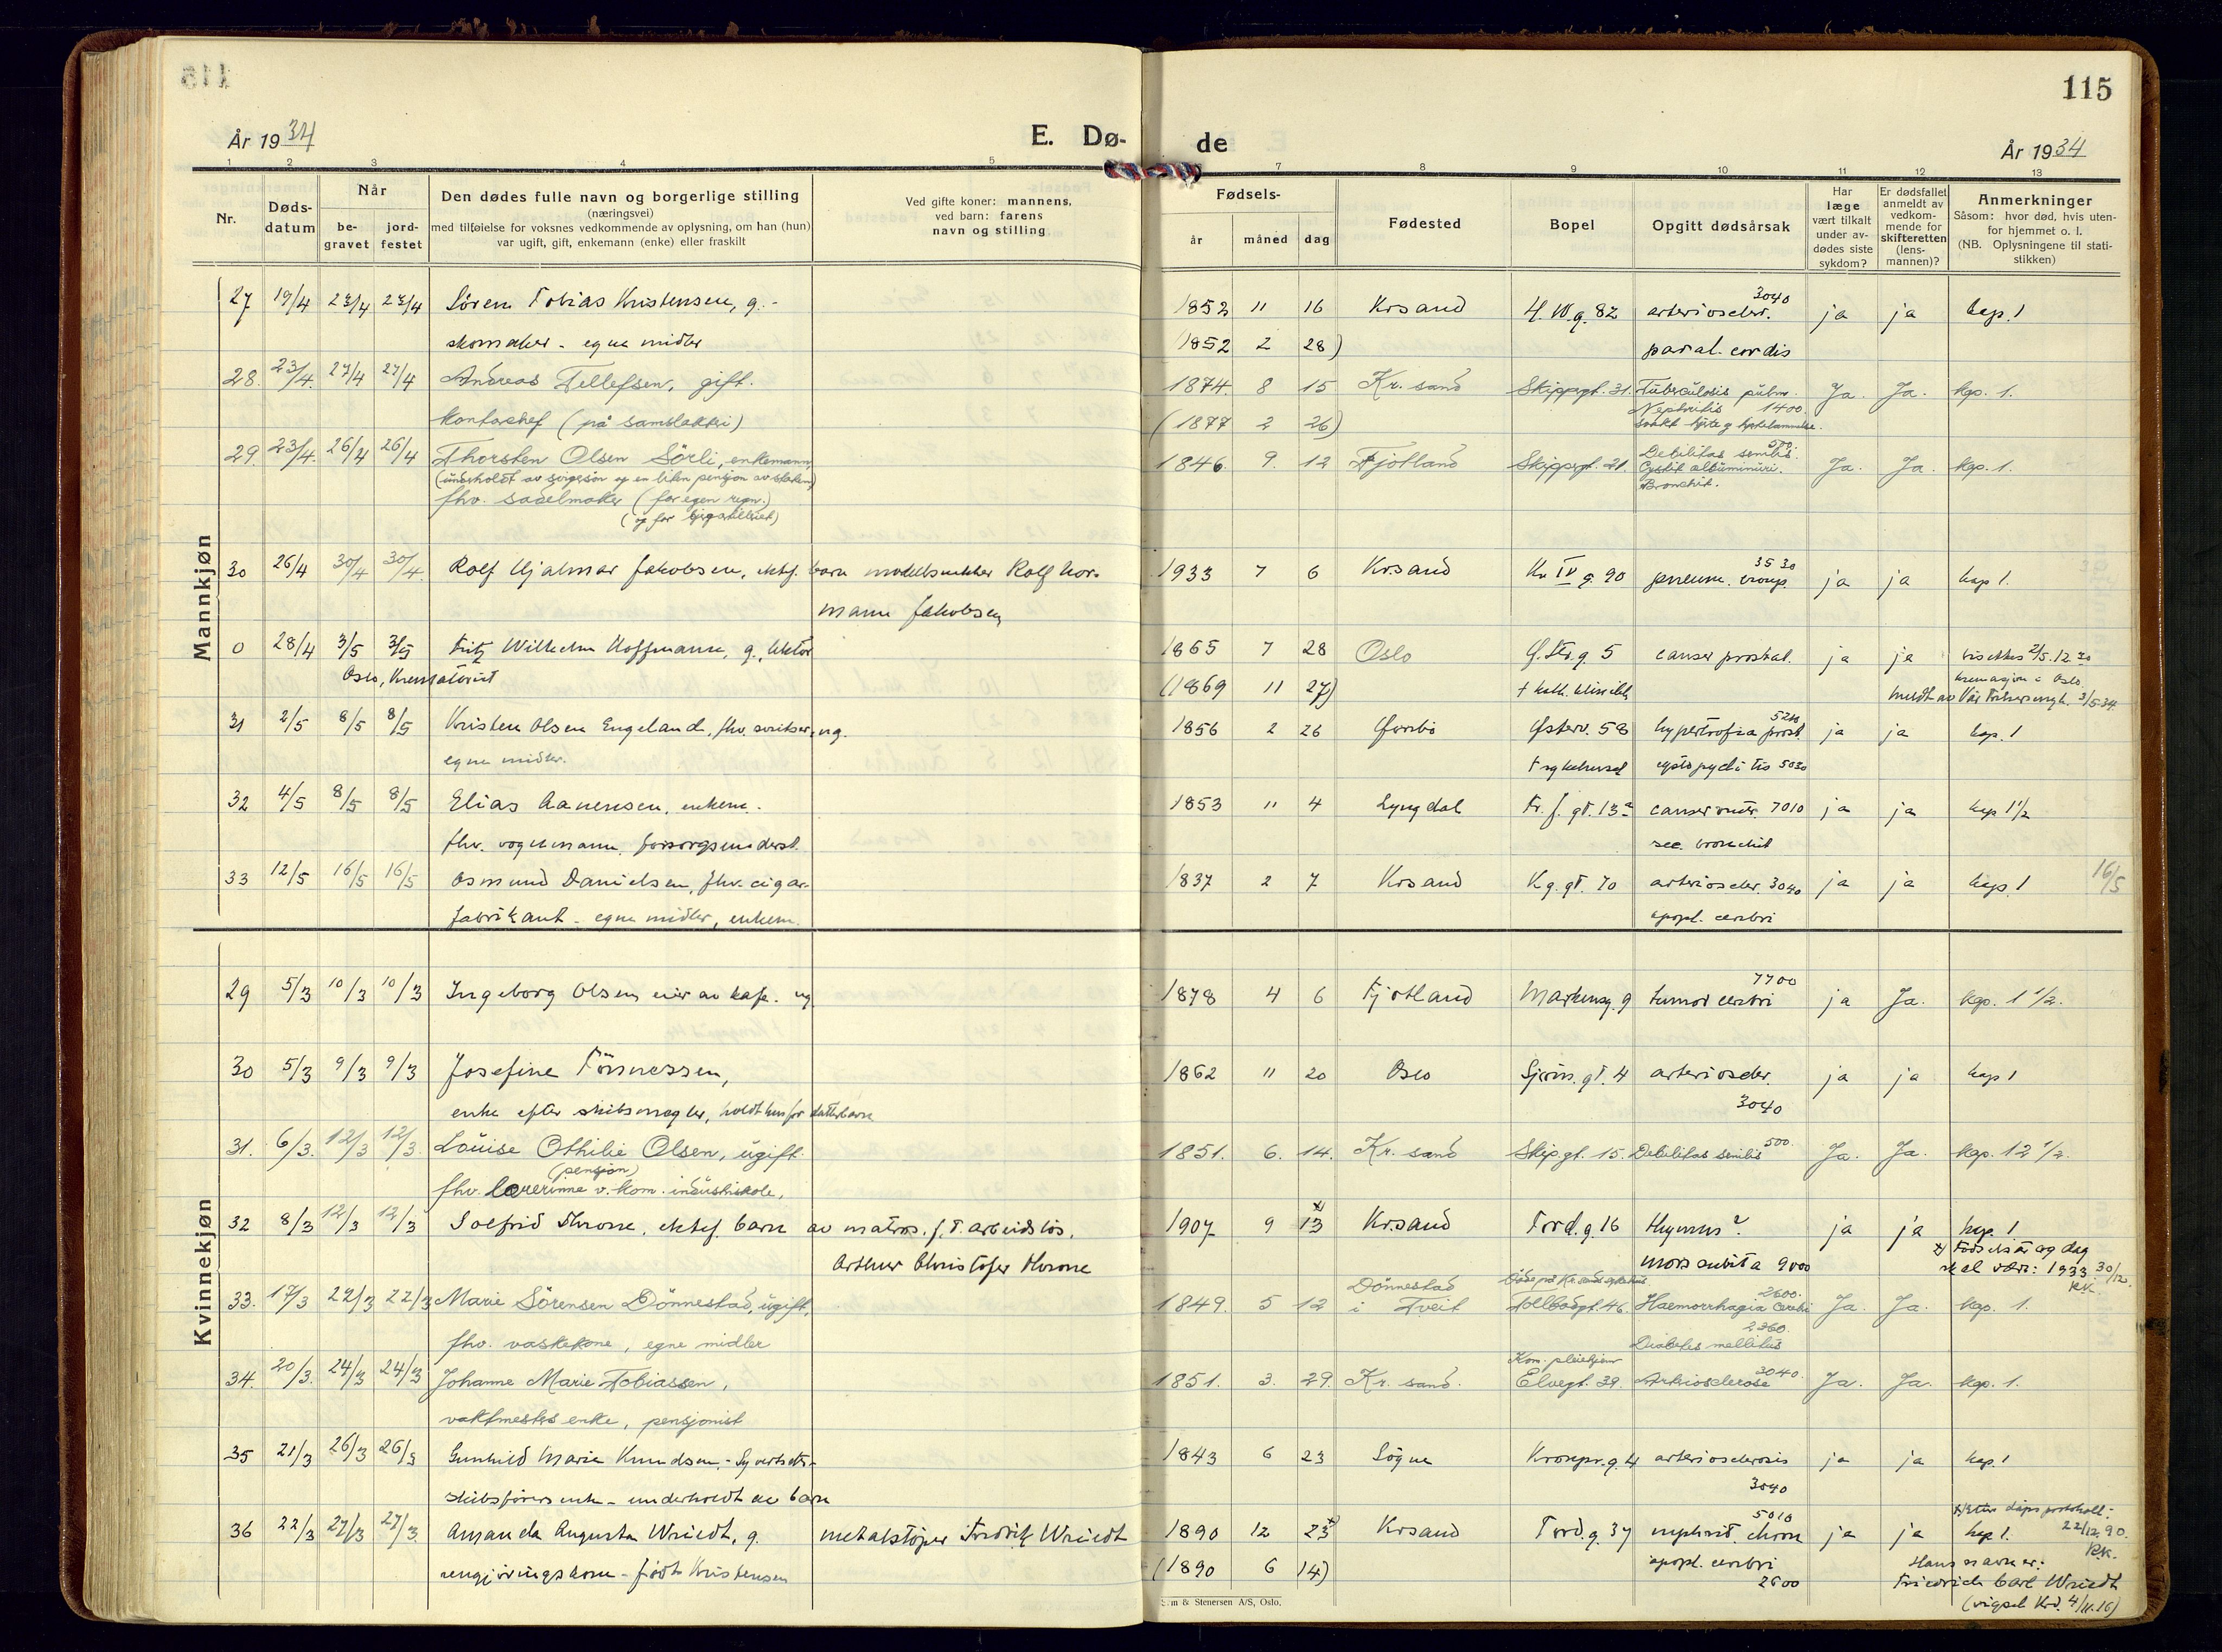 115
År 1934
E. Dø-
de
År 1934
1 2 3 4 5 7 8 9 10 11 12 13
Nr.
Døds-
datum
Når
be-
gravet
jord-
festet
Den dødes fulle navn og borgerlige stilling
(næringsvei)
med tilføielse for voksnes vedkommende av oplysning, om han (hun)
var ugift, gift, enkemann (enke) eller fraskilt
Ved gifte koner: mannens,
ved barn: farens
navn og stilling
Fødsels-
år måned dag
Fødested
Bopel
Opgitt dødsårsak
Har
læge
vært tilkalt
under av-
dødes siste
sykdom?
Er dødsfallet
anmeldt av
vedkom-
mende for
skifteretten
(lens-
mannen)?
Anmerkninger
Såsom: hvor død, hvis uten-
for hjemmet o. l.
(NB. Oplysningene til stati-
stikken)
Mannkjøn
27 19/4 23/4 23/4 Sören Tobias Kristensen, g. - 1852 11 16 Krsand H. W. g. 82 arterioscler. 3040 ja ja kap. 1
skomaker - egne midler (1852 2 28) paral. cordis
28. 23/4. 27/4 27/4 Andreas Tellefsen, gift. 1874. 8 15 Kr. sand Skippergt. 31. Tuberculosis pulm. Ja. Ja. kap. 1.
kontorchef (på samlakkri) (1877 2 26) Nephritis 1400.
29. 23/4. 26/4 26/4 Thorsten Olsen Sörli, enkemann, 1846. 9. 12 Fjotland Skippergt. 21. Debilitas senilis. 500. Ja. Ja. kap. 1.
(underholdt av svigersøn og en liten pensjon av staten) Cystit albuminuri.
fhv. sadelmaker (for egen regn.) Bronchit.
(og for bjergartilleriet)
30 26/4 30/4 30/4. Rolf Hjalmar Jakobsen, ektef. barn modellsnekker Rolf Nor- 1933 7 6 Krsand Kr. IV g. 90 pneum. croup. 3530 ja ja kap 1.
mann Jakobsen
0 28/4 3/5 3/5 Fritz Wilhelm Hoffmann, g., lektor 1865 7 28 Oslo G. Str. g. 5 cancer prostat. ja ja bisettes 2/5. 12.30
Oslo, Krematoriet (1869 11 27) † kath. klinikk kremasjon i Oslo.
meldt av Vår Frelsers mgh. 3/5 34
31 2/5 8/5 8/5 Kristen Olsen Engeland, fhv. ug. 1856 2 26 Østerv. 58 hypertrofia prost. ja ja kap. 1
egne midler. † sykehuset 5030
32 4/5 8/5 8/5 Elias Aanensen, enkem. 1853 11 4 Lyngdal Tr. f. gt. 13a cancer ventr. 7010 ja ja kap 1 1/2
fhv. vognmann, forsorgsunderst. sec. bronchit
33 12/5 16/5 16/5 Osmund Danielsen, fhv. cigar- 1837 2 7 Krsand Kg. gt. 70 arterioscler. 3040 ja ja kap 1 16/5
fabrikant - egne midler, enkem. apopl. cerebri
Kvinnekjøn
29 5/3 10/3 10/3 Ingeborg Olsen, eier av kafe. ug. 1878 4 6 Fjotland Markensg. 9 tumor cerebri 7700 ja Ja. kap. 1 1/2.
30 5/3 9/3 9/3 Josefine Tönnessen, 1862 11 20 Oslo Sjöm. gt. 4 arterioscler. ja ja kap 1
enke efter skibsmegler, holdt hus for datterbarn 3040
31. 6/3. 12/3 12/3. Louise Othilie Olsen, ugift. 1851. 6. 14. Kr. sand Skip. gt. 15. Debilitas senilis 500. Ja. Ja. kap. 12 1/2.
(pensjon)
fhv. lærerinne v. kom. industriskole,
32 8/3 12/3 12/3 Solfrid Thorne, ektef. barn av matros. f. t. arbeidslös. 1907 9 13 x) Krsand Tord. g. 16 thymus? ja ja kap. 1
Arthur Christofer Thorne mors subita 9000 x) Födselsår og dag
skal være: 1933 30/12. KK.
33. 17/3 22/3 22/3 Marie Sörensen Dönnestad, ugift, 1849. 5 12 Dönnestad i Tveit Tollbodgt. 46. Haemorrhagia cerebri 2600. Ja. Ja. kap. 1.
fhv. vaskekone, egne midler 2360. Diabetes mellitus
34. 20/3. 24/3 24/3 Johanne Marie Tobiassen, 1851. 3. 29. Kr. sand. Kom. pleiehjem Elvegt. 39. Arteriosclerose 3040. Ja. Ja. kap. 1.
vaktmesters enke, pensjonist
35 21/3 26/3 26/3 Gunhild Marie Knudsen, - Syvertsdtr. - 1843 6 23 Sögne Kronpr. g. 4 arteriosclerosis ja ja kap. 1
skibsförers enke - underholdt av barn 3040
36 22/3 27/3 27/3. Amanda Augusta Wriedt, g. metalstöper Fredrik Wriedt 1890 12 23 x) Krsand Tord. g. 37 nephrit. chron 5010 ja ja kap 1.
x) Efter dåpsprotokoll: 22/12 90. KK.
rengjöringskone - födt Kristensen (1890 6 14) apopl. cerebri 2600 Hans navn er:
Friedrich Carl Wriedt
(vigsel Krd. 4/11.16)
& Stenersen A/S, Oslo.